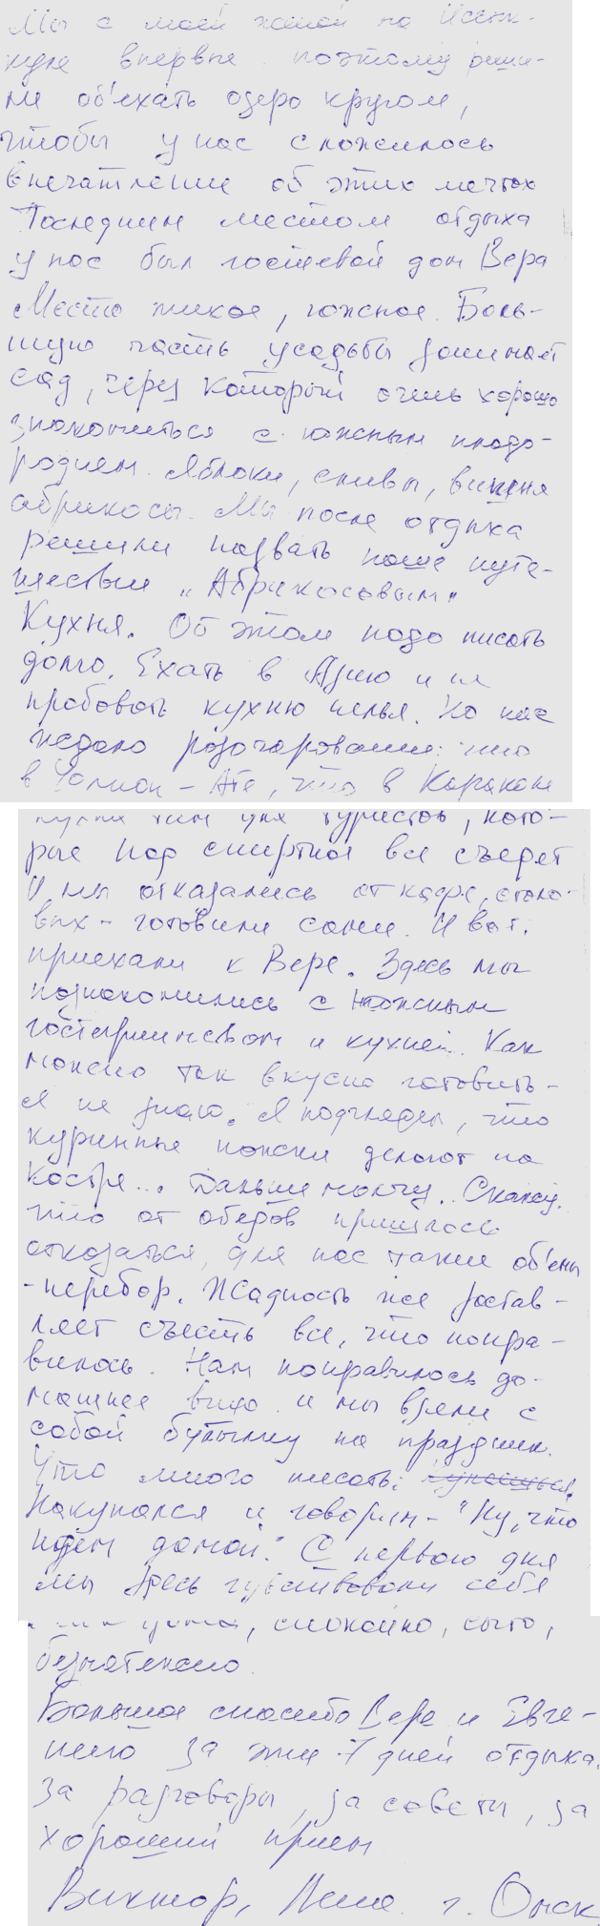 Мы с моей женой на Иссык-
куле впервые поэтому реши-
ли об'ехать озеро кругом,
чтобы у нас сложилось
впечатление об этих местах
Последним местом отдыха
у нас был гостевой дом Вера
Место тихое, южное. Боль-
шую часть усадьбы занимает
сад, через который очень хорошо
знакомиться с южным плодо-
родием. Яблоки, сливы, вишня
абрикосы. Мы после отдыха
решили назвать наше путе-
шествие "Абрикосовым".
Кухня. Об этом надо писать
долго. Ехать в Азию и не
пробовать кухню нельзя. Но нас
ждало разочарование: что
в Чолпон-Ате, что в Караколе
кухня там для туристов, кото-
рые под спиртное все съедят
И мы отказались от кафе, столо-
вых - готовили сами. И вот.
приехали к Вере. Здесь мы
познакомились с южным
гостеприимством и кухней. Как
можно так вкусно готовить -
я не знаю. Я подглядел, что
куриные ножки делают на
костре... Дальше молчу.. Скажу.
что от обедов пришлось
отказаться, для нас такие об'емы
- перебор. Жадность же застав-
ляет съесть все, что понра-
вилось. Нам понравилось до-
машнее вино и мы взяли с
собой бутылку на праздник.
Что много писать:
Накупался и говорим - "Ну, что
идем домой." С первого дня
мы здесь чувствовали себя
как дома, спокойно, сыто,
безмятежно.
Большое спасибо Вере и Евге-
нию за эти 7 дней отдыха.
За разговоры, за советы, за
хороший прием
Виктор, г. Омск